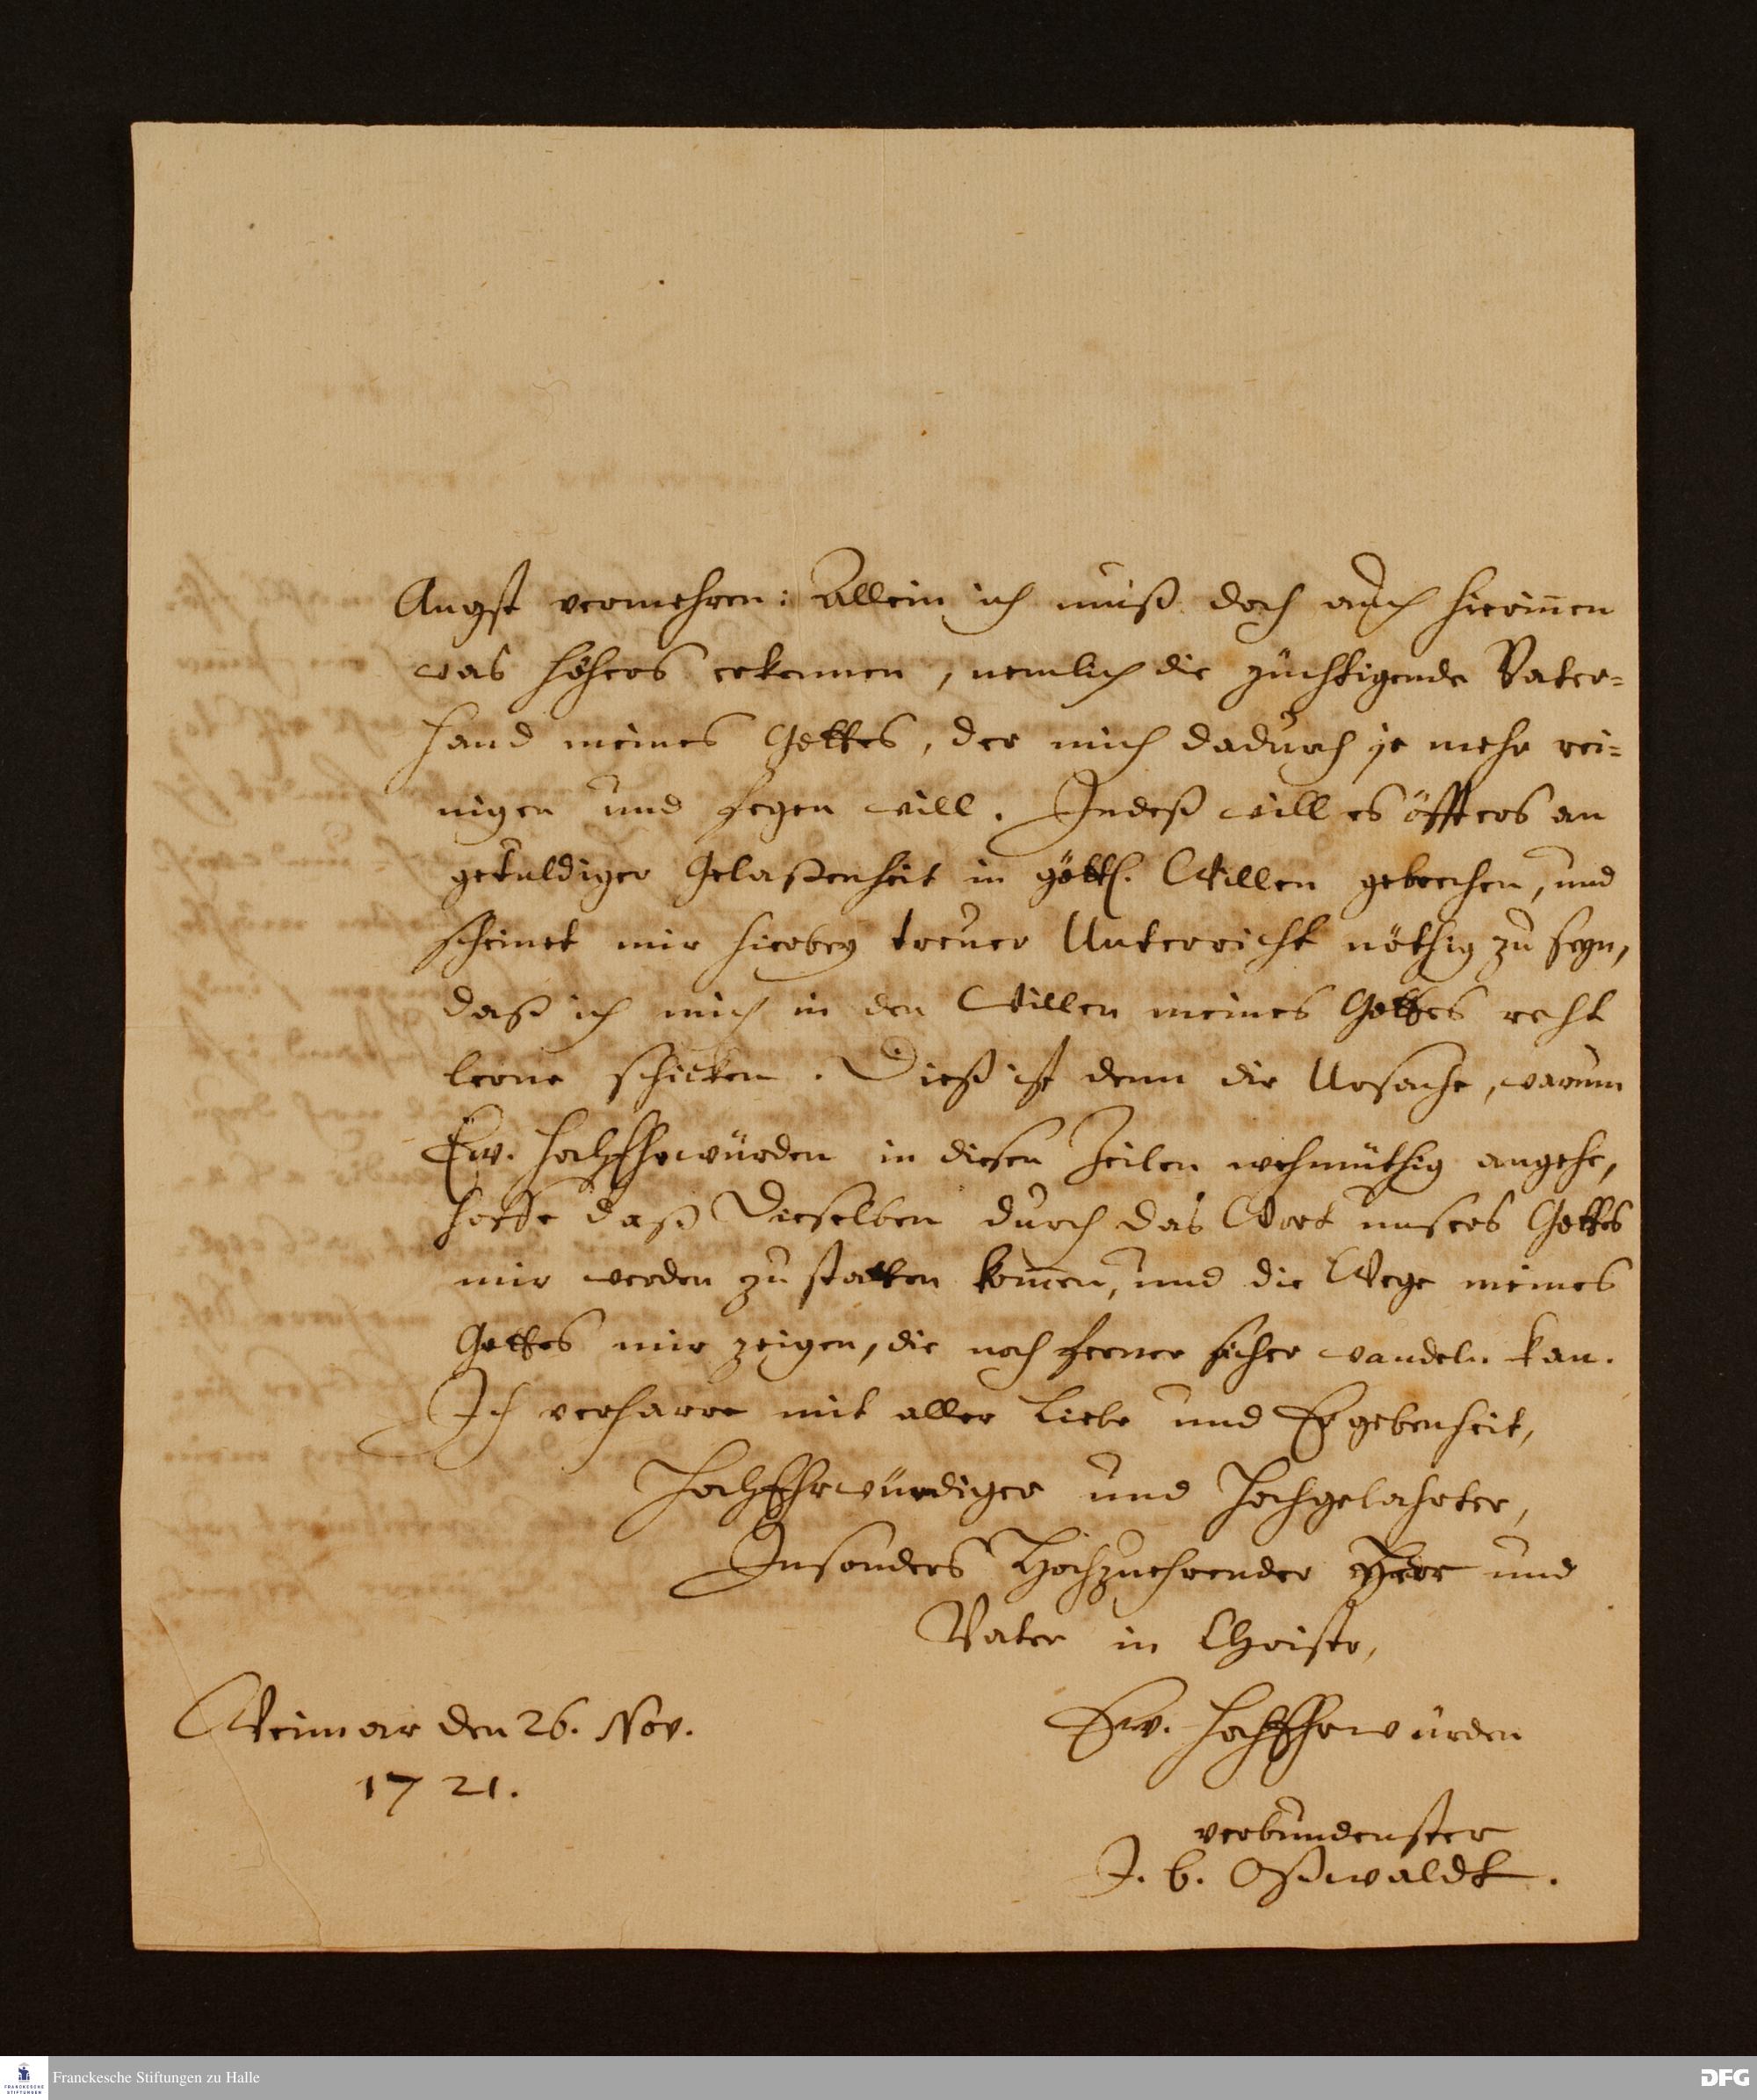 Angst vermehren: Allein ich muß doch auch hierinnen
was höhers erkennen, nemlich die züchtigende Vater-
hand meines Gottes, der mich dadurch je mehr rei-
nigen und fegen will. Indeß will es öffters an
getuldiger Gelaßenheit in göttl. Willen gebrechen, und
scheinet mir hierbey treuer Unterricht nöthig zu seyn,
daß ich mich in den Willen meines Gottes recht
lerne schicken. Dieß ist denn die Ursache, warum
Ew. HochEhrwürden in diesen Zeilen wehmüthig angehe,
hoffe daß Dieselben durch das Wort unsers Gottes
mir werden zu statten kom̅en, und die Wege meines
Gottes mir zeigen, die noch ferner sicher wandeln kan.
Ich verharre mit aller Liebe und Ergebenheit,
HochEhrwürdiger und Hochgelahrter,
Insonders Hochzuehrender Herr und
Vater in Christo,
Weimar den 26. Nov.
1721.
Ew. HochEhrwürden
verbundenster
J. C. Oßwaldt.
Franckesche Stiftungen zu Halle
FRANCKESCHE
STIFTUNGEN
DFG